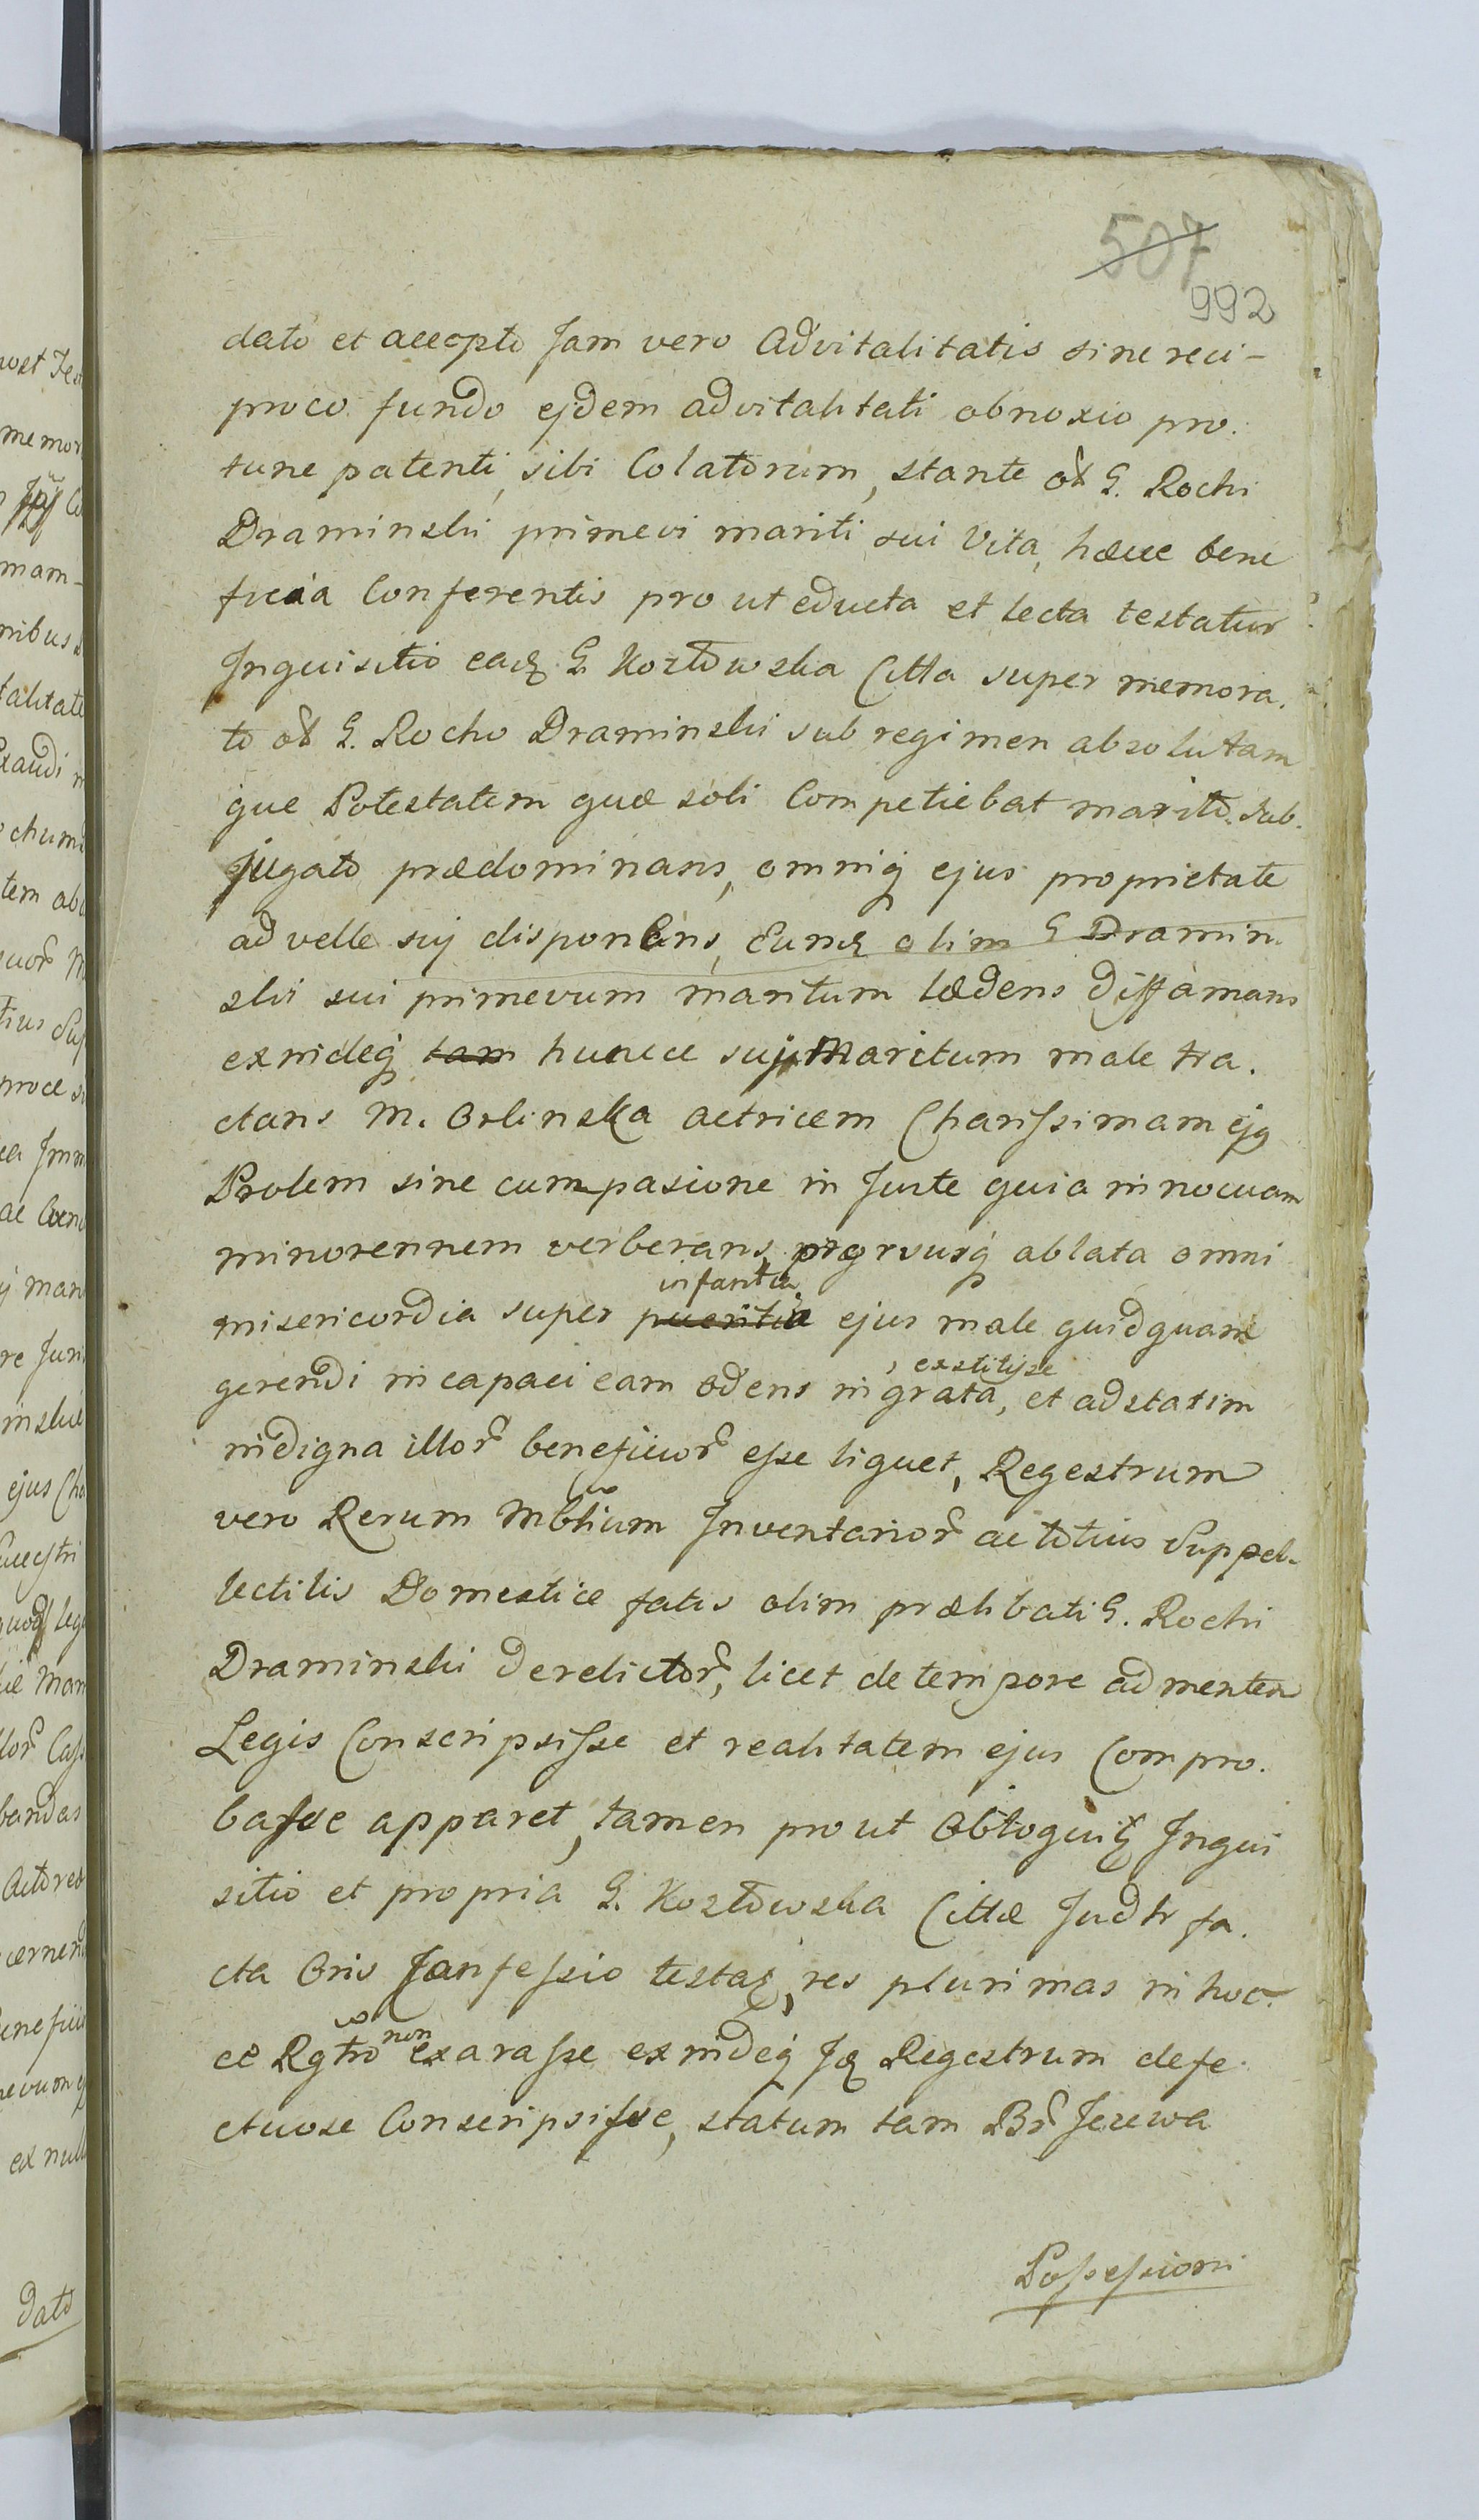 507
992
dato et accepto Jam vero Advitalitatis sine reci-
proco fundo ejdem advitalitati obnoxio pro.
tunc patenti, sibi Colatorum, stante ol G. Rochi
Draminski primevi mariti sui Vita, hæcce bene
ficia Conferentis pro ut educta et lecta testatur
Inquisitio eadq G. Kozłowska Citta super memora.
to ol G. Rocho Draminski sub regimen absolutam
que Potestatem quæ soli Competiebat marito. sub.
jugato prædominans, omniq ejus proprietate
ad velle suj disponens, Eumq olim G Dramin.
ski sui primevum maritum lædens diffamans
exindeq huncce suj Maritum male tra.
ctans M. Orlinska actricem Charissimam ejq
Prolem sine cumpasione in Juste quia innocuam
minorennem verberans, prorsusq ablata omni
infantia
misericordia super pueritia ejus male quidquam
gerendi incapaci eam odens ingrata, et adstatim
, exstitisse
indigna illor beneficior esse liquet, Regestrum
vero Rerum Mblium Inventarior ac totius Suppel-
lectilis Domestice fatis olim prælibati G. Rochi
Draminski derelictor, licet de tempore ad mentem
Legis Conscripsisse et realitatem ejus Compro.
basse apparet, tamen prout Obloquitq Inqui
sitio et propria G. Kozłowska Cittæ Judlr fa.
cta Oris Confessio testaq, res plurimas in hoc.
ce Rgtro non exarasse exindeq Jq Regestrum defe
ctuose Conscripsisse, statum tam Br Jerewa
Possessioni